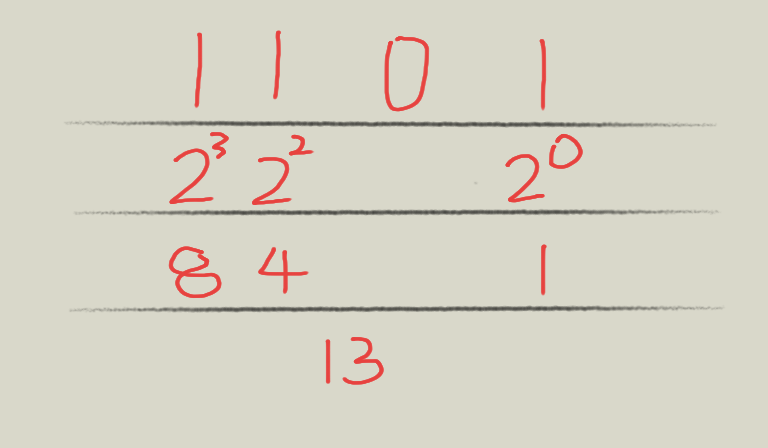 1 1 0 1
2³ 2² 2⁰
8 4 1
13